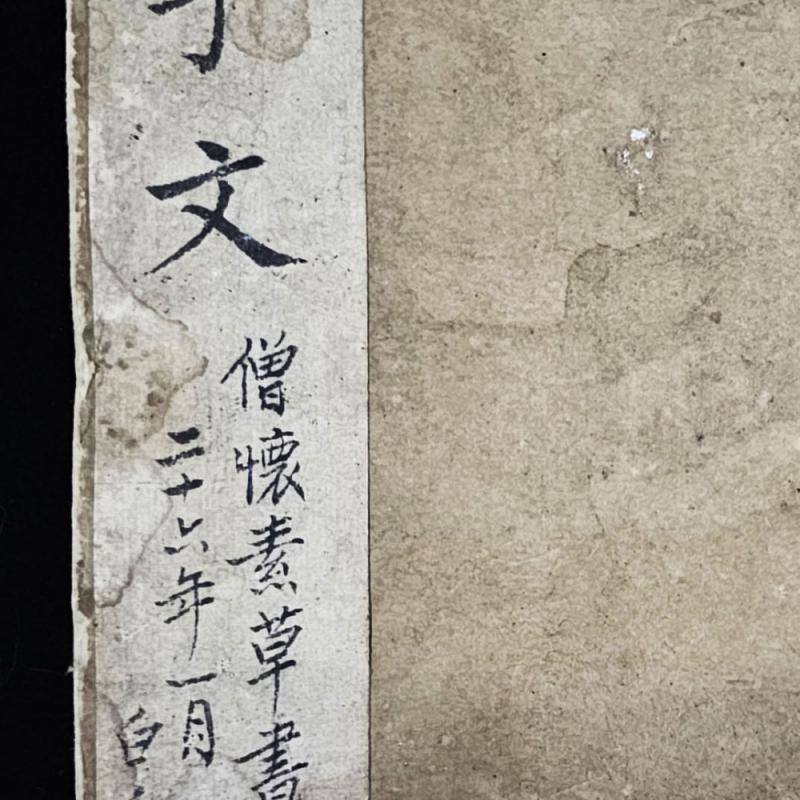 文
僧懷素草書
二十六年一月
白